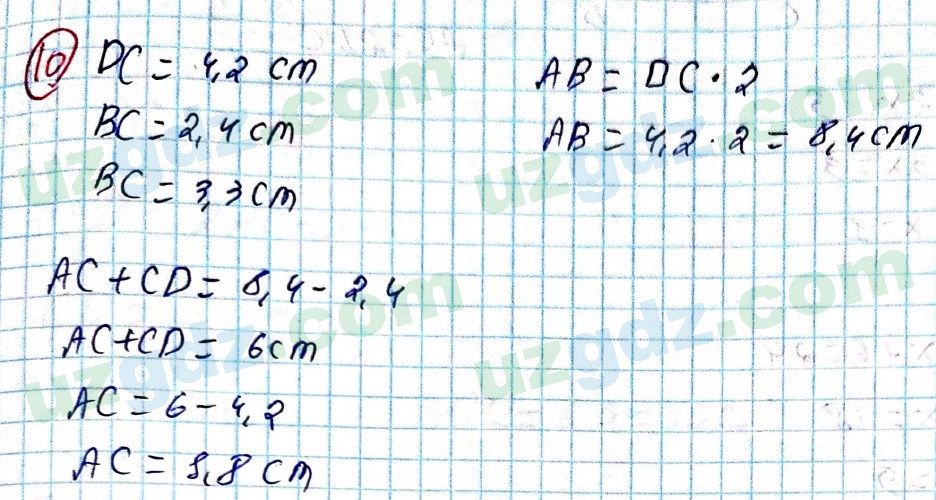 10 DC = 4,2 cm
BC = 2,4 cm
BC = 3,3 cm
AB = DC · 2
AB = 4,2 · 2 = 8,4 cm
AC + CD = 8,4 - 2,4
AC + CD = 6 cm
AC = 6 - 4,2
AC = 1,8 cm
uzgdz.com
uzgdz.com
uzgdz.com
uzgdz.com